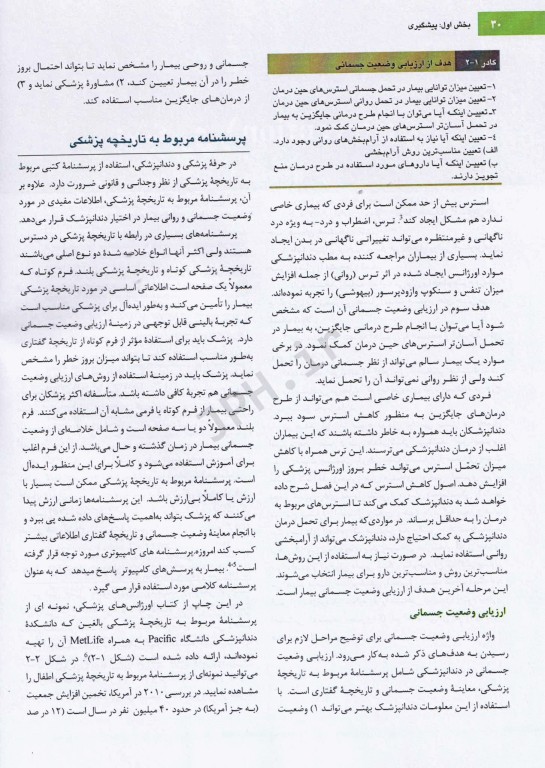 ۳۰ بخش اول: پیشگیری
کادر ۱-۲ هدف از ارزیابی وضعیت جسمانی
۱- تعیین میزان توانایی بیمار در تحمل جسمانی استرس‌های حین درمان
۲- تعیین میزان توانایی بیمار در تحمل روانی استرس‌های حین درمان
۳- تعیین اینکه آیا می‌توان با انجام طرح درمانی جایگزین به بیمار
در تحمل آسان‌تر استرس‌های حین درمان کمک نمود.
۴- تعیین اینکه آیا نیاز به استفاده از آرام‌بخش‌های روانی وجود دارد.
الف) تعیین مناسب‌ترین روش آرام‌بخشی
ب) تعیین اینکه آیا داروهای مورد استفاده در طرح درمان منع
تجویز دارند.
استرس بیش از حد ممکن است برای فردی که بیماری خاصی
ندارد هم مشکل ایجاد کند. ترس، اضطراب و درد- به ویژه درد
ناگهانی و غیرمنتظره می‌تواند تغییراتی ناگهانی در بدن ایجاد
نماید. بسیاری از بیماران مراجعه کننده به مطب دندانپزشکی
موارد اورژانس ایجاد شده در اثر ترس (روانی) از جمله افزایش
میزان تنفس و سنکوپ وازودپرسور (بیهوشی) را تجربه نموده‌اند.
هدف سوم در ارزیابی وضعیت جسمانی آن است که مشخص
شود آیا می‌توان با انجام طرح درمانی جایگزین، به بیمار در
تحمل آسان‌تر استرس‌های حین درمان کمک نمود. در برخی
موارد یک بیمار سالم می‌تواند از نظر جسمانی درمان را تحمل
کند ولی از نظر روانی نمی‌تواند آن را تحمل نماید.
فردی که دارای بیماری خاصی است هم می‌تواند از طرح
درمان‌های جایگزین به منظور کاهش استرس سود ببرد.
دندانپزشکان باید همواره به خاطر داشته باشند که این بیماران
اغلب از درمان دندانپزشکی می‌ترسند. این ترس همراه با کاهش
میزان تحمل استرس می‌تواند خطر بروز اورژانس پزشکی را
افزایش دهد. اصول کاهش استرس که در این فصل شرح داده
خواهد شد به دندانپزشک کمک می‌کند تا استرس‌های مربوط به
درمان را به حداقل برساند. در مواردی‌که بیمار برای تحمل درمان
دندانپزشکی به کمک احتیاج دارد، دندانپزشک می‌تواند از آرامبخشی
روانی استفاده نماید. در صورت نیاز به استفاده از این روش‌ها،
مناسب‌ترین روش و مناسب‌ترین دارو برای بیمار انتخاب می‌شوند.
این مرحله آخرین هدف از ارزیابی وضعیت جسمانی بیمار است.
ارزیابی وضعیت جسمانی
واژه ارزیابی وضعیت جسمانی برای توضیح مراحل لازم برای
رسیدن به هدف‌های ذکر شده به‌کار می‌رود. ارزیابی وضعیت
جسمانی در دندانپزشکی شامل پرسشنامهٔ مربوط به تاریخچهٔ
پزشکی، معاینهٔ وضعیت جسمانی و تاریخچهٔ گفتاری است. با
استفاده از این معلومات دندانپزشک بهتر می‌تواند ۱) وضعیت
جسمانی و روحی بیمار را مشخص نماید تا بتواند احتمال بروز
خطر را در آن بیمار تعیین کند، ۲) مشاورهٔ پزشکی نماید و ۳)
از درمان‌های جایگزین مناسب استفاده کند.
پرسشنامه مربوط به تاریخچه پزشکی
در حرفهٔ پزشکی و دندانپزشکی، استفاده از پرسشنامهٔ کتبی مربوط
به تاریخچهٔ پزشکی از نظر وجدانی و قانونی ضرورت دارد. علاوه بر
آن، پرسشنامهٔ مربوط به تاریخچهٔ پزشکی، اطلاعات مفیدی در مورد
وضعیت جسمانی و روانی بیمار در اختیار دندانپزشک قرار می‌دهد.
پرسشنامه‌های بسیاری در رابطه با تاریخچهٔ پزشکی در دسترس
هستند ولی اکثر آنها انواع خلاصه شدهٔ دو نوع اصلی می‌باشند
تاریخچهٔ پزشکی کوتاه و تاریخچهٔ پزشکی بلند. فرم کوتاه که
معمولاً یک صفحه است اطلاعاتی اساسی در مورد تاریخچهٔ پزشکی
بیمار را تأمین می‌کند و به‌طور ایده‌آل برای پزشکی مناسب است
که تجربهٔ بالینی قابل توجهی در زمینهٔ ارزیابی وضعیت جسمانی
دارد. پزشک باید برای استفادهٔ مؤثر از فرم کوتاه از تاریخچهٔ گفتاری
به‌طور مناسب استفاده کند تا بتواند میزان بروز خطر را مشخص
نماید. پزشک باید در زمینهٔ استفاده از روش‌های ارزیابی وضعیت
جسمانی هم تجربهٔ کافی داشته باشد. متأسفانه اکثر پزشکان برای
راحتی بیمار از فرم کوتاه یا فرمی مشابه آن استفاده می‌کنند. فرم
بلند معمولاً دو یا سه صفحه است و شامل خلاصه‌ای از وضعیت
جسمانی بیمار در زمان گذشته و حال می‌باشد. از این فرم اغلب
برای آموزش استفاده می‌شود و کاملاً برای این منظور ایده‌آل
است. پرسشنامهٔ مربوط به تاریخچهٔ پزشکی ممکن است بسیار با
ارزش یا کاملاً بی‌ارزش باشد. این پرسشنامه‌ها زمانی ارزش پیدا
می‌کنند که پزشک بتواند به‌اهمیت پاسخ‌های داده شده پی ببرد و
با انجام معاینهٔ وضعیت جسمانی و تاریخچهٔ گفتاری اطلاعاتی بیشتر
کسب کند امروزه،پرسشنامه های کامپیوتری مورد توجه قرار گرفته
است. بیمار به پرسش‌های کامپیوتر پاسخ میدهد که به عنوان
پرسشنامه کلامی مورد استفاده قرار می گیرد .
در این چاپ از کتاب اورژانس‌های پزشکی، نمونه ای از
پرسشنامهٔ مربوط به تاریخچهٔ پزشکی بالغین که دانشکدهٔ
دندانپزشکی دانشگاه Pacific به همراه MetLife آن را تهیه
نموده‌اند، ارائه داده شده است (شکل ۱-۲). در شکل ۲-۲
می‌توانید نمونه‌ای از پرسشنامهٔ مربوط به تاریخچهٔ پزشکی اطفال را
مشاهده نمایید. در بررسی ۲۰۱۰ در آمریکا، تخمین افزایش جمعیت
(به جز آمریکا) در حدود ۴۰ میلیون نفر در سال است (۱۲ در صد